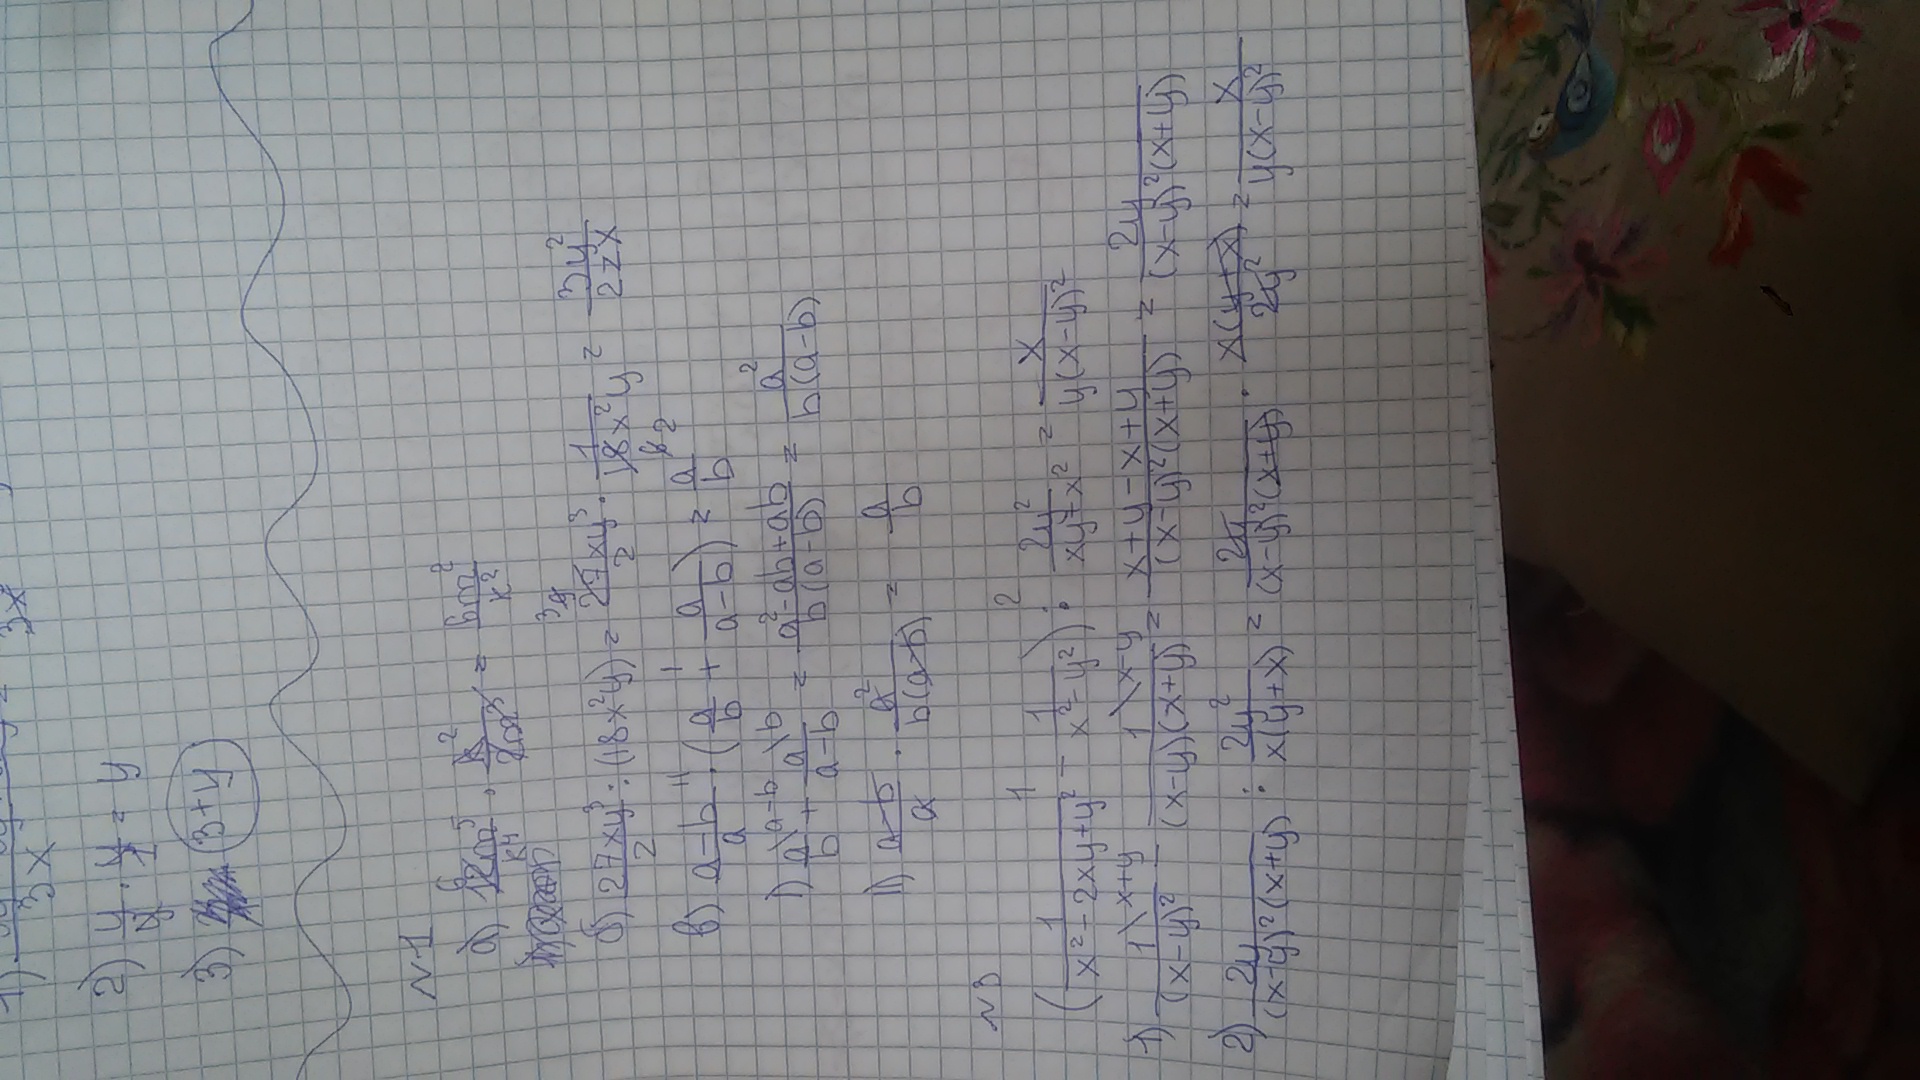 3x
2) y/y · y/1 = y
3) 3+y
N1
а) 12m⁵/k⁴ · k²/2m³ = 6m²/k²
б) 27xy³/z : (18x²y) = 27xy³/z · 1/18x²y = 3y²/2zx
в) a-b/a · (a/b + a/a-b) = a/b
1) a\a-b/b + a\b/a-b = a²-ab+ab/b(a-b) = a²/b(a-b)
a-b/a · a²/b(a-b) = a/b
N3
(1/x²-2xy+y² - 1/x²-y²) : 2y²/xy+x² = x/y(x-y)²
1) 1\x+y/(x-y)² - 1\x-y/(x-y)(x+y) = x+y-x+y/(x-y)²(x+y) = 2y/(x-y)²(x+y)
2) 2y/(x-y)²(x+y) : 2y²/x(y+x) = 2y/(x-y)²(x+y) · x(y+x)/2y² = x/y(x-y)²